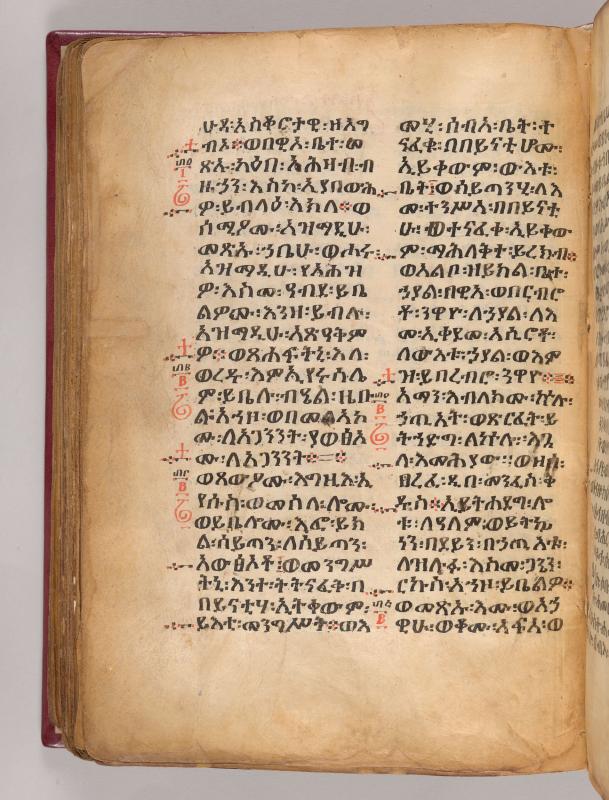 ሁዳ፡አስቆሮታዊ፡ዘአግ
ብኦ፡ወበዊኦ፡ቤተ፡መ
ጽኡ፡ካዕበ፡አሕዛብ፡ብ
ዙኃን፡እስከ፡ኢያበውሕ
ዎ፡ይብላዕ፡እክለ፡ወ
ሰሚዖሙ፡አዝማዲሁ፡
መጽኡ፡ኀቤሁ፡ወሖሩ
አዝማዲሁ፡የአሕዝ
ዎ፡እስመ፡ዓብደ፡ይቤ
ልዎሙ፡እንዘ፡ይብሉ፡
አዝማዲሁ፡
ዎ፡ወጸሐፍትኒ፡እለ፡
ወረዱ፡እምኢየሩሳሌ
ም፡ይቤሉ፡ብዔል፡ዜቡ
ል፡አኀዞ፡ወበመልአኮ
ሙ፡ለአጋንንት፡ያወፅኦ
ሙ፡ለአጋንንት።
ወጸውዖሙ፡እግዚእ፡ኢ
የሱስ፡ወመሰለ፡ሎሙ፡
ወይቤሎሙ፡እፎ፡ይክ
ል፡ሰይጣን፡ለሰይጣን፡
አውፅኦቶ፡ወመንግሥ
ትኒ፡እንተ፡ትትናፈቅ፡በ
በይናቲሃ፡ኢትቀውም፡
ይእቲ፡መንግሥት።ወእ
መሂ፡ሰብአ፡ቤት፡ተ
ናፈቁ፡በበይናቲሆሙ፡
ኢይቀውም፡ውእቱ፡
ቤት፡ወሰይጣንሂ፡ለእ
መ፡ተንሥአ፡በበይናቲ
ሁ፡ወተናፈቀ፡ኢይቀው
ም፡ማሕለቅተ፡ይረክብ።
ወአልቦ፡ዘይክል፡ቤተ፡
ኃያል፡በዊአ፡ወበርብሮ
ቶ፡ንዋዮ፡ለኃያል፡ለእ
መ፡ኢቀደመ፡አሲሮቶ፡
ለውእቱ፡ኃያል፡ወእም
ዝ፡ይበረብሮ፡ንዋዮ።
አማን፡እብለክሙ፡ኵሉ፡
ኃጢአት፡ወጽርፈት፡ይ
ትኀደግ፡ለኵሉ፡
ለ፡እመሕያው፡ወዘሰ፡
ፀረፈ፡ዲበ፡መንፈስ፡ቅ
ዱስ፡ኢይትሐደግ፡ሎ
ቱ፡ለዓለም፡ወይትኴ
ነን፡በደይን፡በኃጢአቱ፡
ለዝሉፉ፡እስመ፡ጋኔን፡
ርኩስ፡አኀዞ፡ይቤልዎ።
ወመጽኡ፡እሙ፡ወአኃ
ዊሁ፡ወቆሙ፡አፍአ፡ወ